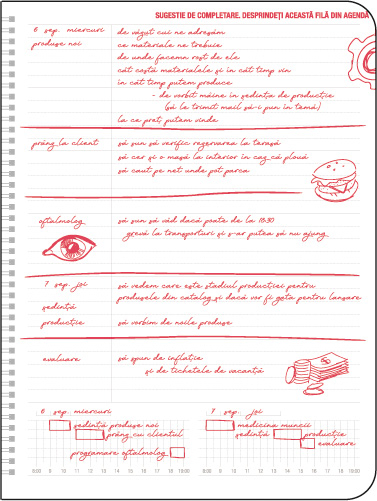 SUGESTIE DE COMPLETARE. DESPRINDEȚI ACEASTĂ FILĂ DIN AGENDĂ
6 sep. miercuri
produse noi
de văzut cui ne adresăm
ce materiale ne trebuie
de unde facem rost de ele
cât costă materialele și în cât timp vin
în cât timp putem produce
- de vorbit mâine în ședința de producție
(să le trimit mail să-i pun în temă)
la ce preț putem vinde
prânz la client
să sun să verific rezervarea la terasă
să cer și o masă la interior în caz că plouă
să caut pe net unde pot parca
oftalmolog
să sun să văd dacă poate de la 18:30
grevă la transporturi și s-ar putea să nu ajung
7 sep. joi
ședință
producție
să vedem care este stadiul producției pentru
produsele din catalog și dacă vor fi gata pentru lansare
să vorbim de noile produse
evaluare
să spun de inflație
și de tichetele de vacanță
6 sep. miercuri
ședință produse noi
prânz cu clientul
programare oftalmolog
8:00 9 10 11 12 13 14 15 16 17 18 19:00
7 sep. joi
medicina muncii
ședință producție
evaluare
8:00 9 10 11 12 13 14 15 16 17 18 19:00